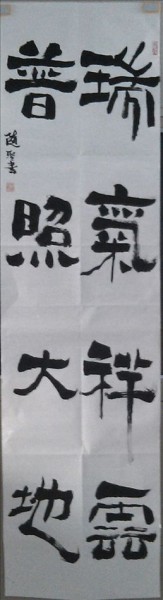 瑞氣祥雲
普照大地